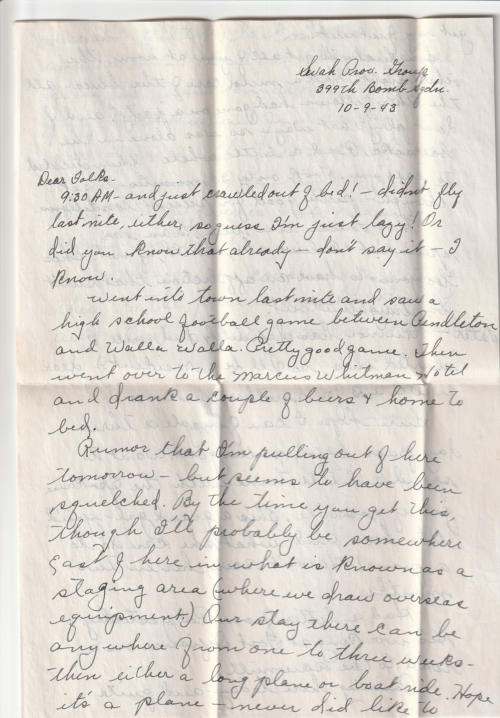 Swah Prov. Group
399th Bomb Sqdn.
10-9-43
Dear Folks-
9:30 AM - and just crawled out of bed! - didn't fly
last nite, either, so guess I'm just lazy! Or
did you know that already - don't say it - I
know.
Went into town last nite and saw a
high school football game between Pendleton
and Walla Walla. Pretty good game. Then
went over to the Marcus Whitman Hotel
and drank a couple of beers & home to
bed.
Rumor that I'm pulling out of here
tomorrow - but seems to have been
squelched. By the time you get this,
though I'll probably be somewhere
East of here in what is known as a
staging area (where we draw overseas
equipment.) Our stay there can be
anywhere from one to three weeks -
then either a long plane or boat ride. Hope
it's a plane - never did like to